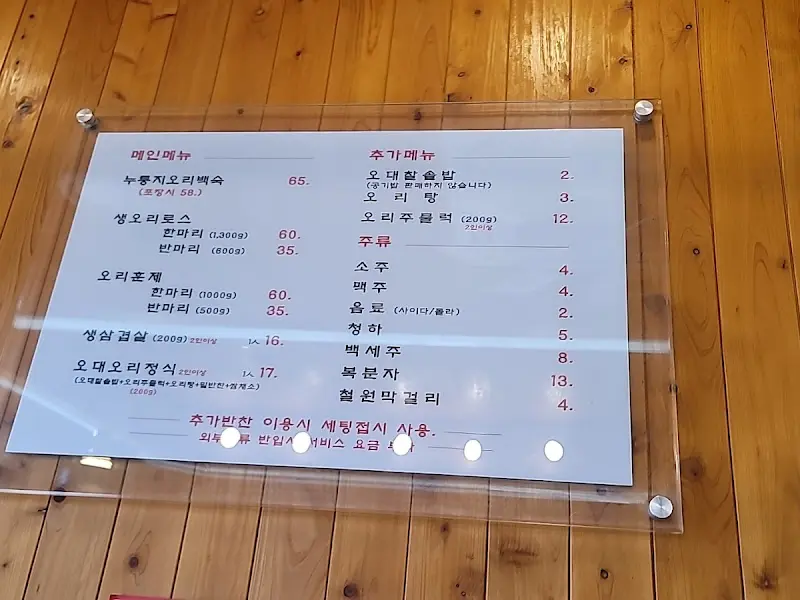 메인메뉴
누룽지오리백숙 65.
(포장시 58.)
생오리로스
한마리 (1,300g) 60.
반마리 (600g) 35.
오리훈제
한마리 (1000g) 60.
반마리 (500g) 35.
생삼겹살 (200g) 2인이상 1人 16.
오대오리정식 2인이상 1人 17.
(오대찰솥밥+오리주물럭+오리탕+밑반찬+쌈채소)
(200g)
추가메뉴
오대찰솥밥 2.
(공기밥 판매하지 않습니다)
오리탕 3.
오리주물럭 (200g) 12.
2인이상
주류
소주 4.
맥주 4.
음료 (사이다/콜라) 2.
청하 5.
백세주 8.
복분자 13.
철원막걸리 4.
추가반찬 이용시 세팅접시 사용.
반입시 요금